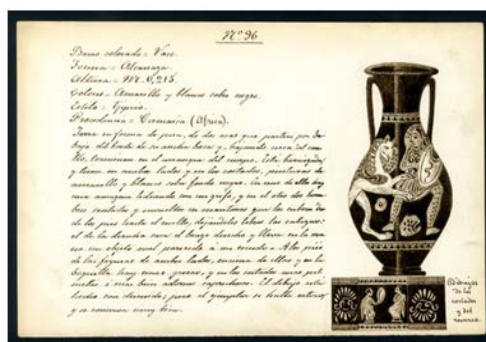 Nº 96
Barro colorado = Vaso.
Forma = Alcarraza.
Altura = Mt. 0,215.
Colores = Amarillo y blanco sobre negro.
Estilo = Egipcio.
Procedencia = Cirenaica (Africa).
Jarra en forma de pera, de dos asas que parten por de
bajo del borde de su ancha boca y, bajando cerca del cue
llo, terminan en el arranque del cuerpo. Está barnizada
y tiene en ambos lados y en los costados, pinturas de
amarillo y blanco sobre fondo negro. En uno de ellos hay
una amazona lidiando con un grifo, y en el otro dos hom
bres sentados y envueltos en mantos que los cubren des
de los pies hasta el cuello, dejándoles libres las cabezas:
el de la derecha saca el brazo derecho y lleva en la ma
no un objeto oval parecido á un escudo. A los piés
de las figuras de ambos lados, encima de ellas y en la
boquilla hay unas grecas, y en los costados unas pal
metas ó mas bien adornos caprichosos. El dibujo está
hecho con descuido; pero el ejemplar se halla entero
y se conserva muy bien.
Dibujos
de los
costados
y del
reverso.